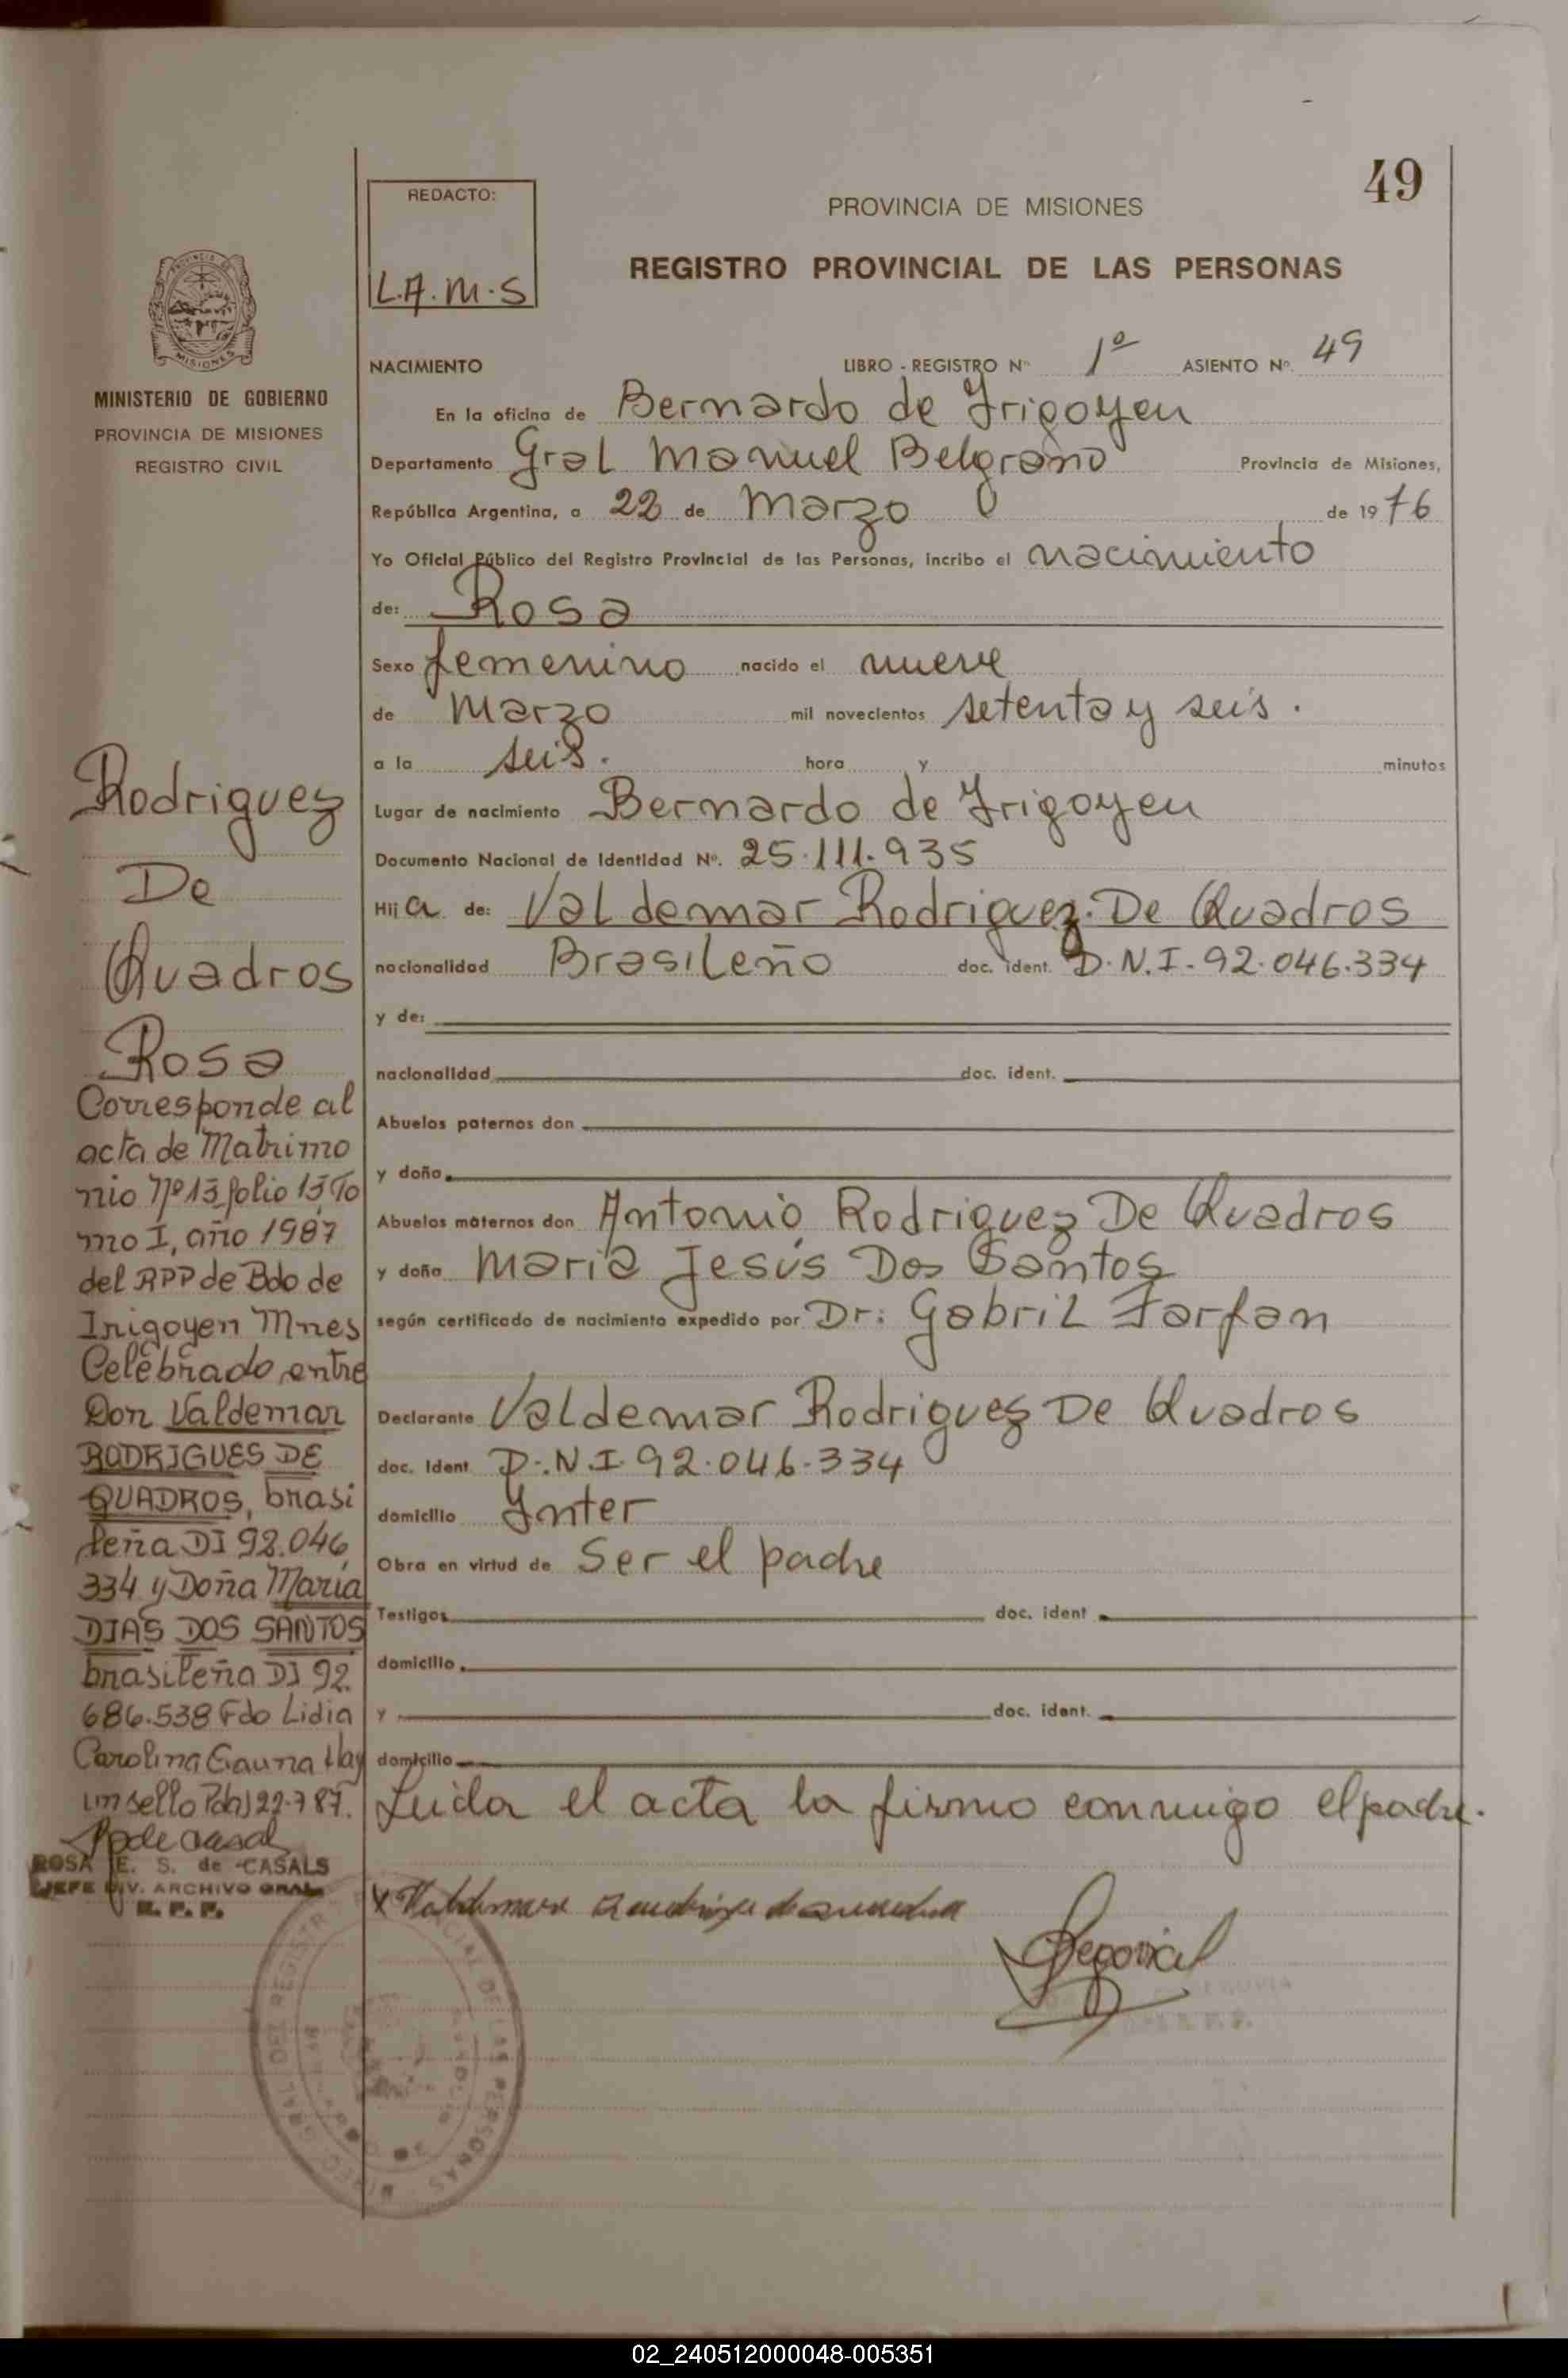 49
REDACTO:
L.A.M.S
PROVINCIA DE MISIONES
REGISTRO PROVINCIAL DE LAS PERSONAS
MISIONES
MINISTERIO DE GOBIERNO
PROVINCIA DE MISIONES
REGISTRO CIVIL
NACIMIENTO LIBRO - REGISTRO Nº 1º ASIENTO Nº. 49
En la oficina de Bernardo de Irigoyen
Departamento Gral Manuel Belgrano Provincia de Misiones,
República Argentina, a 22 de Marzo de 1976
Yo Oficial Público del Registro Provincial de las Personas, incribo el nacimiento
de: Rosa
Sexo femenino nacido el nueve
de Marzo mil novecientos setenta y seis.
a la seis. hora y minutos
Lugar de nacimiento Bernardo de Irigoyen
Documento Nacional de Identidad Nº. 25.111.935
Hija de: Valdemar Rodriguez De Quadros
nacionalidad Brasileño doc. ident. D.N.I-92.046.334
y de:
nacionalidad doc. ident.
Abuelos paternos don
y doña
Abuelos maternos don Antonio Rodriguez De Quadros
y doña Maria Jesús Dos Santos
según certificado de nacimiento expedido por Dr: Gabril Farfan
Declarante Valdemar Rodriguez De Quadros
doc. Ident D.N.I. 92.046.334
domicilio Inter
Obra en virtud de Ser el padre
Testigos doc. ident
domicilio
y doc. ident.
domicilio
Leida el acta la firmo conmigo el padre.
Rodriguez
De
Quadros
Rosa
Corresponde al
acta de Matrimo
nio Nº 13 folio 13 To
mo I, año 1987
del RPP de Bdo de
Irigoyen Mnes
Celebrado entre
Don Valdemar
RODRIGUES DE
QUADROS, brasi
leña DI 92.046.
334 y Doña María
DIAS DOS SANTOS
brasileña DI 92.
686.538 Fdo Lidia
Carolina Gauna Hay
un sello 22-7 87.
ROSA E. S. de CASALS
JEFE DIV. ARCHIVO GRAL
R. P. P.
02_240512000048-005351